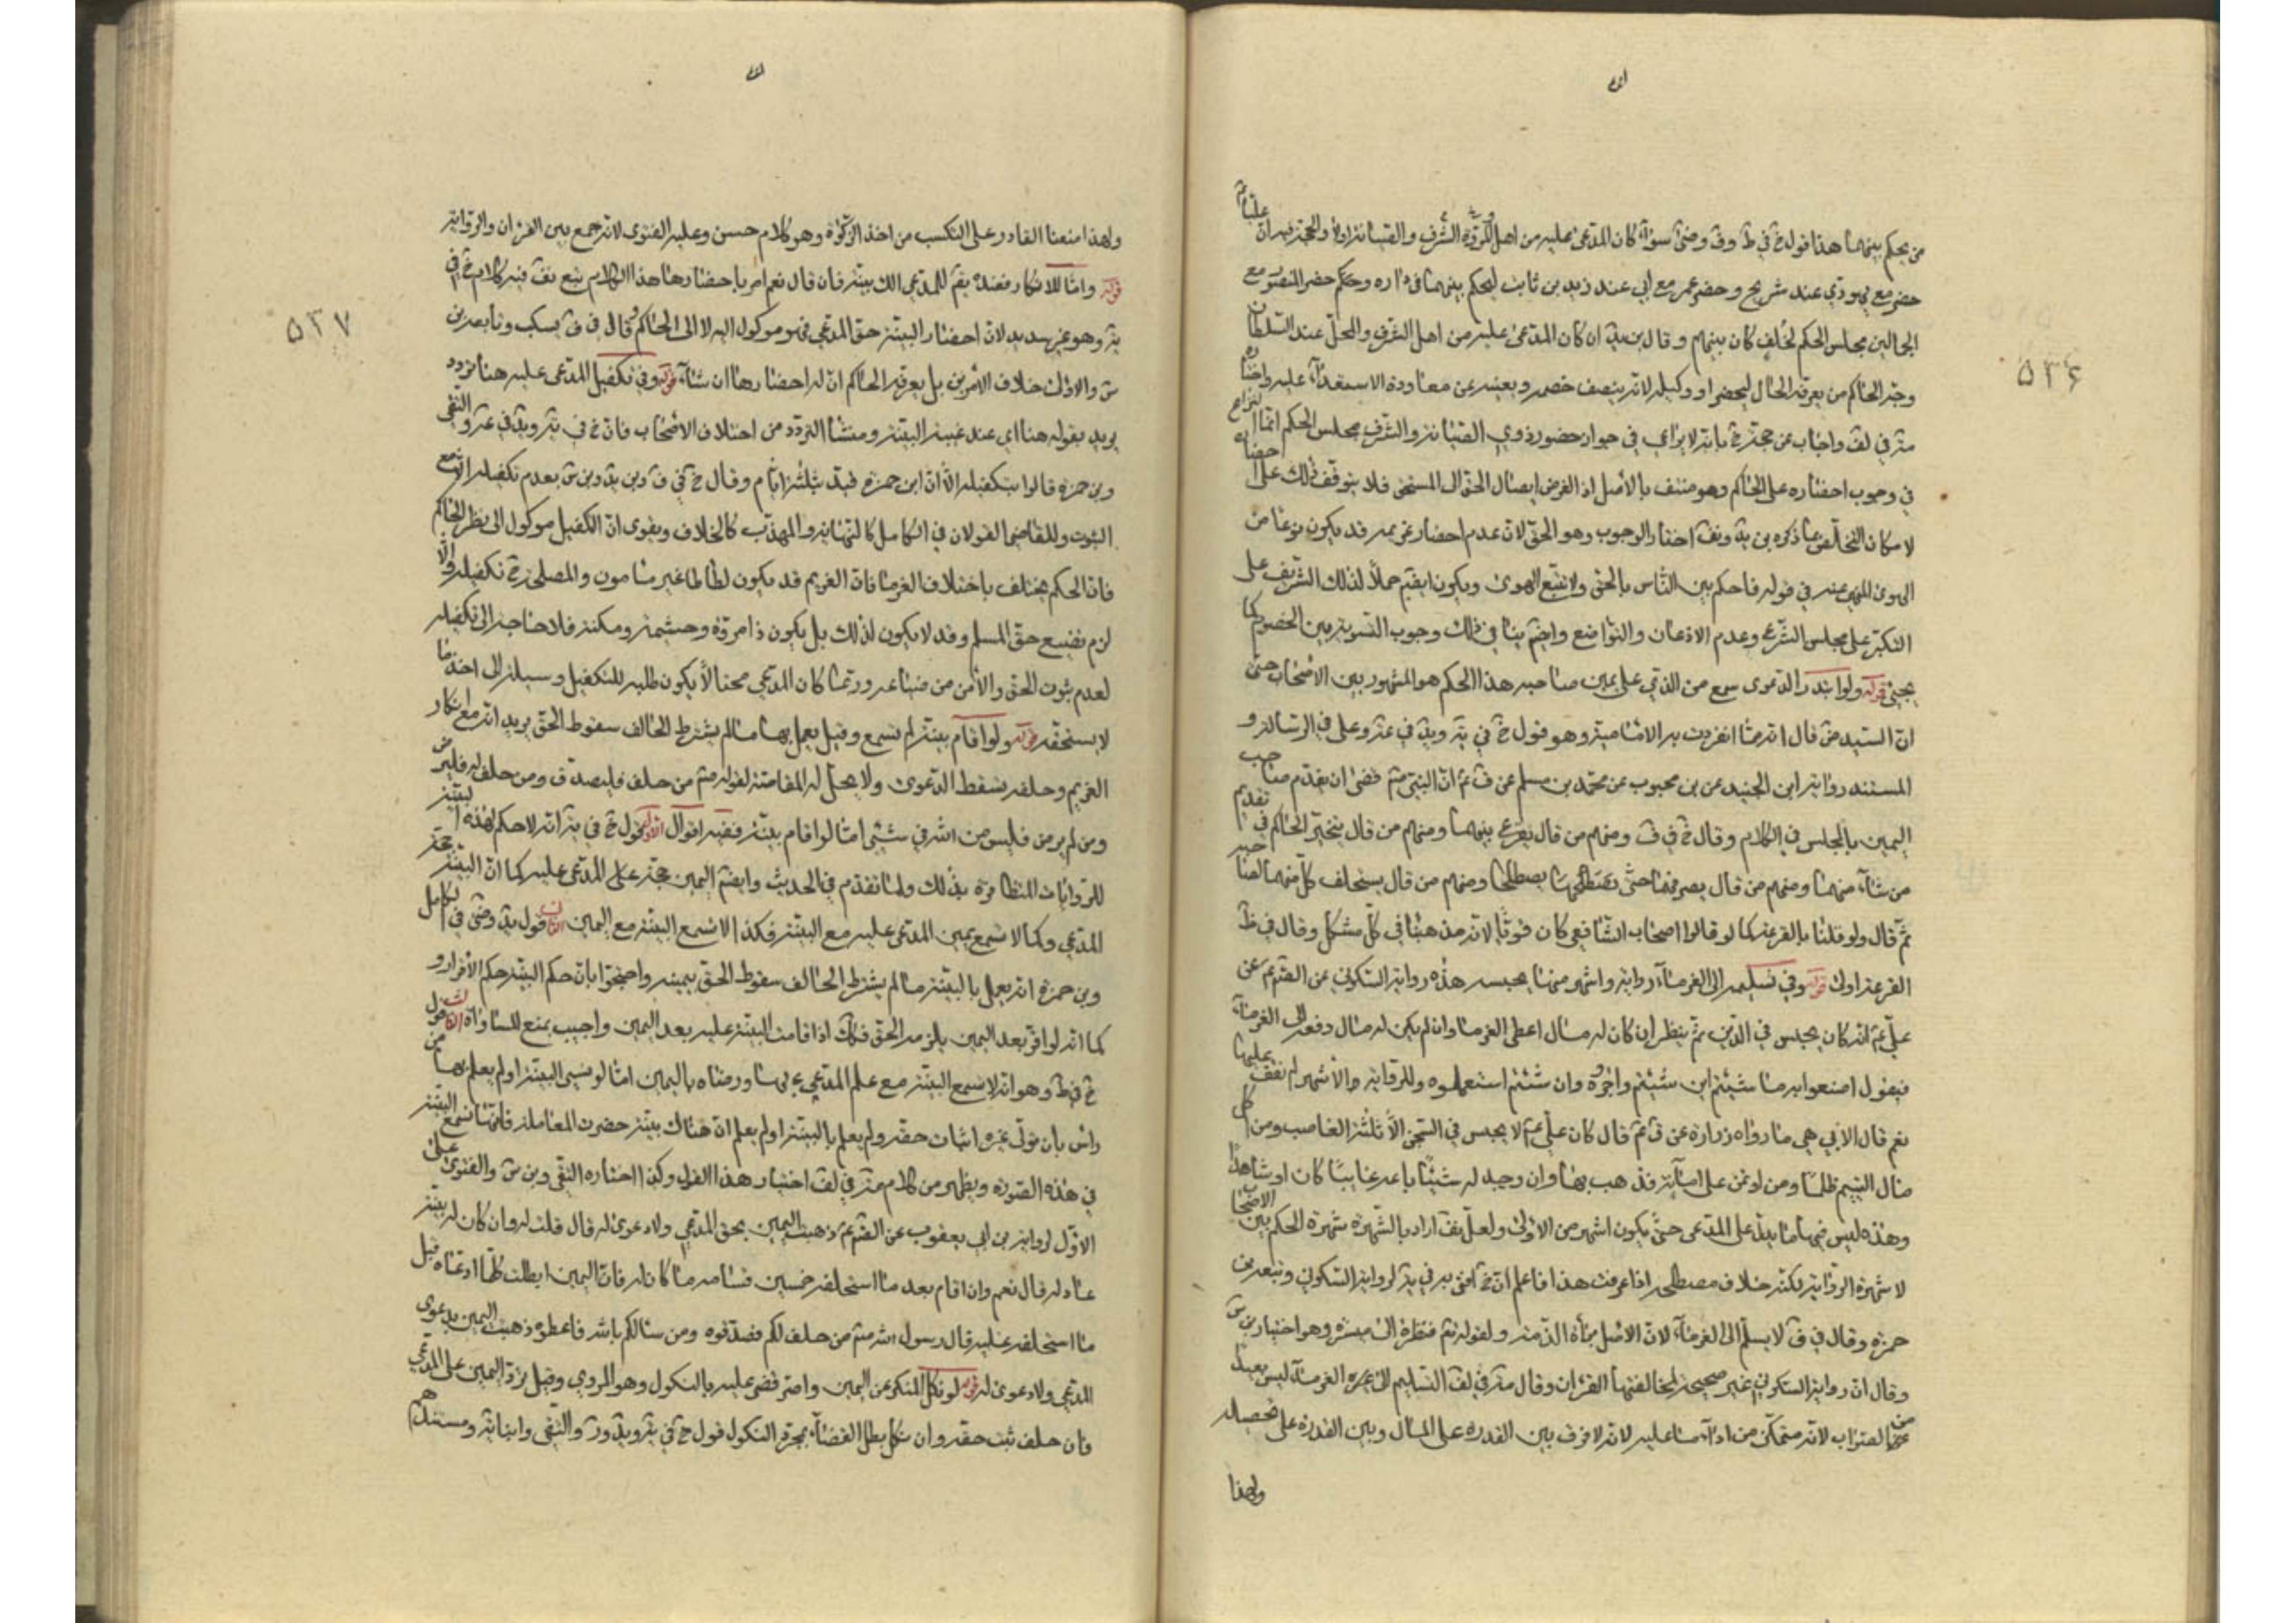 من يحكم بينهما هذا قول خ في ط وف وضى سواء كان المدعى عليه من اهل المروة والشرف والصيانة اولا والحجة فيه ان عليا ع
حضر مع يهودي عند شريح وحضر عمر مع ابي عند زيد بن ثابت ليحكم بينهما في داره وحكم حضر المنصور مع
الجمالين مجلس الحكم لخلف كان بينهم وقال بن يد ان كان المدعى عليه من اهل الشرف والمحل عند السلطان
وجه الحاكم من يعرفه الحال ليحضر او وكيله لانه ينصف خصمه ويعينه عن معاودة الاستعداء عليه واختاره
مة في لف واجاب عن حجة خ بانه لا نزاع في جواز حضور ذوي الصيانة والشرف مجلس الحكم انما النزاع
في وجوب احضاره على الحاكم وهو منتف بالأصل اذ الغرض ايصال الحق الى المستحق فلا يتوقف ذلك على احضاره
لامكان التخلص بما ذكره بن يد ونف اختار الوجوب وهو الحق لان عدم احضار غريمه قد يكون نوعا من
الهوى المنهى عنه في قوله فاحكم بين الناس بالحق ولا تتبع الهوى ويكون ايضم حملا لذلك الشريف على
التكبر على مجلس الشرع وعدم الاذعان والتواضع وايضم ينافي ذلك وجوب التسوية بين الخصوم كما
يجيئ قوله ولو ابتدر الدعوى سمع من الذي على يمين صاحبه هذا الحكم هو المشهور بين الاصحاب حتى
ان السيد ض قال انه مما انفردت به الامامية وهو قول خ في ية ويد في عة وعلى في الرسالة و
المستند رواية ابن الجنيد عن بن محبوب عن محمد بن مسلم عن ق ع ان النبي ص قضى ان يقدم صاحب
اليمين بالمجلس في الكلام وقال خ في ف ومنهم من قال يقرع بينهما ومنهم من قال يتخير الحاكم في تقديم
من شاء منهما ومنهم من قال يصرفهما حتى يصطلحا ومنهم من قال يستحلف كل منهما لصاحبه
ثم قال ولو قلنا بالقرعة كما لو قالوا اصحاب الشافعي كان قويا لانه مذهبنا في كل مشكل وقال في ط
القرعة اولى قوله وفي تسليمه الى الغرماء رواية واشهر منها يحبسه هذه رواية السكوني عن الصم ع عن
علي ع انه كان يحبس في الدين ثم ينظر ان كان له مال اعطى الغرما وان لم يكن له مال دفعه الى الغرماء
فيقول اصنعوا به ما شئتم ان شئتم واجروه وان شئتم استعملوه والرواية والأشهر لم نقف عليها
نعم قال الابي هي ما رواه زرارة عن ق ع قال كان علي ع لا يحبس في السجن الا ثلثة الغاصب ومن اكل
مال اليتيم ظلما ومن اوتمن على امانة فذهب بها وان وجد له شيئا باعه غايبا كان او شاهدا
وهذه ليس فيها ما يدل على المدعى حتى يكون اشهر من الاولى ولعل نف اراد بالشهرة شهرة الحكم بين الاصحاب
لا شهرة الرواية لكنه خلاف مصطلحه اذا عرفت هذا فاعلم ان خ افتى به في ية لرواية السكوني وتبعه بن
حمزة وقال في ف لا يسلم الى الغرماء لان الاصل براءة الذمة ولقوله تع فنظرة الى ميسرة وهو اختيار بن س
وقال ان رواية السكوني غير صحيحة لمخالفتها القران وقال مة في لف التسليم الى الغرماء ليس بعيدا
من الصواب لانه متمكن من اداء ما عليه لانه لا فرق بين القدرة على المال وبين القدرة على تحصيله
ولهذا
۵۳۶
ولهذا منعنا القادر على التكسب من اخذ الزكوة وهو كلام حسن وعليه الفتوى لانه جمع بين القران والرواية
قوله واما الانكار فعنده يقم للمدعي الك بينة فان قال نعم امر باحضارها هذا الكلام تبع نف فيه كلام خ في
ية وهو غير سديد لان احضار البينة حق المدعي فهو موكول اليه لا الى الحاكم وقال في ف بسكب وتابعه بن
س والاولى خلاف الأمرين بل يعرفه الحاكم ان له احضارها ان شاء قوله وفي تكفيل المدعى عليه هنا تردد
يريد بقوله هنا اي عند غيبة البينة ومنشأ التردد من اختلاف الأصحاب فان خ في ية ويد في عة والتقى
وبن حمزة قالوا بتكفيله الا ان ابن حمزة قيد بثلثة ايام وقال خ في ف وبن يد وبن س بعدم تكفيله لانه مع
الثبوت وللقاضي القولان في الكامل كالنهاية والمهذب كالخلاف ويقوى ان الكفيل موكول الى نظر الحاكم
فان الحكم يختلف باختلاف الغرما فان الغريم قد يكون لطاطا غير مامون والمصلحة ح تكفيله والا
لزم تضييع حق المسلم وقد لا يكون لذلك بل يكون ذا مروة وحشيمة ومكنة فلا حاجة الى تكفيله
لعدم ثبوت الحق والأمن من ضياعه وربما كان المدعي محتالا يكون طلبه للتكفيل وسيلة الى اخذ ما
لا يستحقه قوله ولو اقام بينة لم تسمع وقيل يعمل بها ما لم يشترط الحالف سقوط الحق يريد انه مع انكار
الغريم وحلفه تسقط الدعوى ولا يحل له المقاصة لقوله ص من حلف فليصدق ومن حلف له فليرض
ومن لم يرض فليس من الله في شيئ اما لو اقام بينة ففيه اقوال الاول قول خ في ية انه لا حكم لهذه البينة
للروايات المتظافرة بذلك ولما تقدم في الحديث وايضم اليمين حجة على المدعى عليه كما ان البينة حجة
المدعي وكما لا تسمع يمين المدعى عليه مع البينة فكذا لا تسمع البينة مع اليمين الثاني قول يد وضى في الكامل
وبن حمزة انه يعمل بالبينة ما لم يشترط الحالف سقوط الحق بيمينه واحتجوا بان حكم البينة حكم الأقرار و
كما انه لو اقر بعد اليمين يلزمه الحق فكك اذا قامت البينة عليه بعد اليمين واجيب بمنع المساواة الثالث قول
خ في ط وهو انه لا تسمع البينة مع علم المدعي بها ورضاه باليمين اما لو نسي البينة او لم يعلم بها من
راس بان تولى غيره اثبات حقه ولم يعلم بالبينة او لم يعلم ان هناك بينة حضرت المعاملة فانها تسمع البينة
في هذه الصورة ويظهر من كلام مة في لف اختيار هذا القول وكذا اختاره التقى وبن س والفتوى على
الاول لرواية بن ابي يعفور عن الصم ع ذهبت اليمين بحق المدعي ولا دعوى له قال قلت له وان كان له بينة
عادلة قال نعم وان اقام بعد ما استحلفه خمسين قسامة ما كان له فان اليمين ابطلت كلما ادعاه قبل
ما استحلفه عليه قال رسول الله ص من حلف لكم فصدقوه ومن سالكم بالله فاعطوه ذهبت اليمين بدعوى
المدعي ولا دعوى له قوله لو نكل المنكر عن اليمين واصر قضى عليه بالنكول وهو المروي وقيل يرد اليمين على المدعي
فان حلف ثبت حقه وان نكل بطل القضاء بمجرد النكول قول خ في ية ويد ور والتقى وابنا ية ومستندهم
۵۳۷